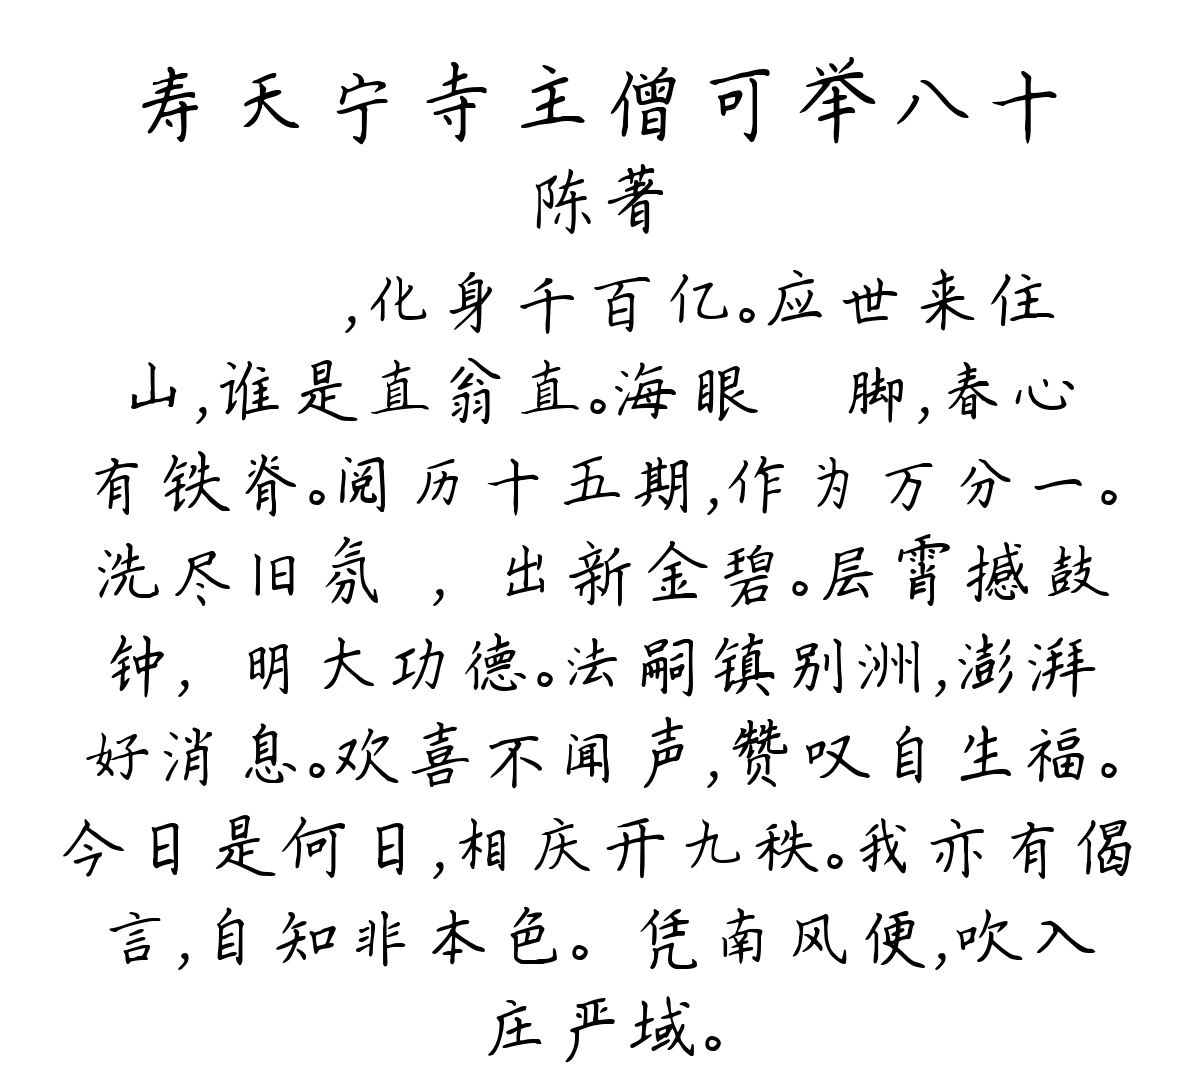 寿天宁寺主僧可举八十
陈著
,化身千百亿。应世来住
山,谁是直翁直。海眼 脚,春心
有铁脊。阅历十五期,作为万分一。
洗尽旧氛 ，出新金碧。层霄撼鼓
钟，明大功德。法嗣镇别洲,澎湃
好消息。欢喜不闻声,赞叹自生福。
今日是何日,相庆开九秩。我亦有偈
言,自知非本色。凭南风便,吹入
庄严域。